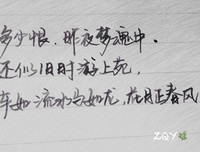 多少恨，昨夜梦魂中。
还似旧时游上苑，
车如流水马如龙，花月正春风
ZQY